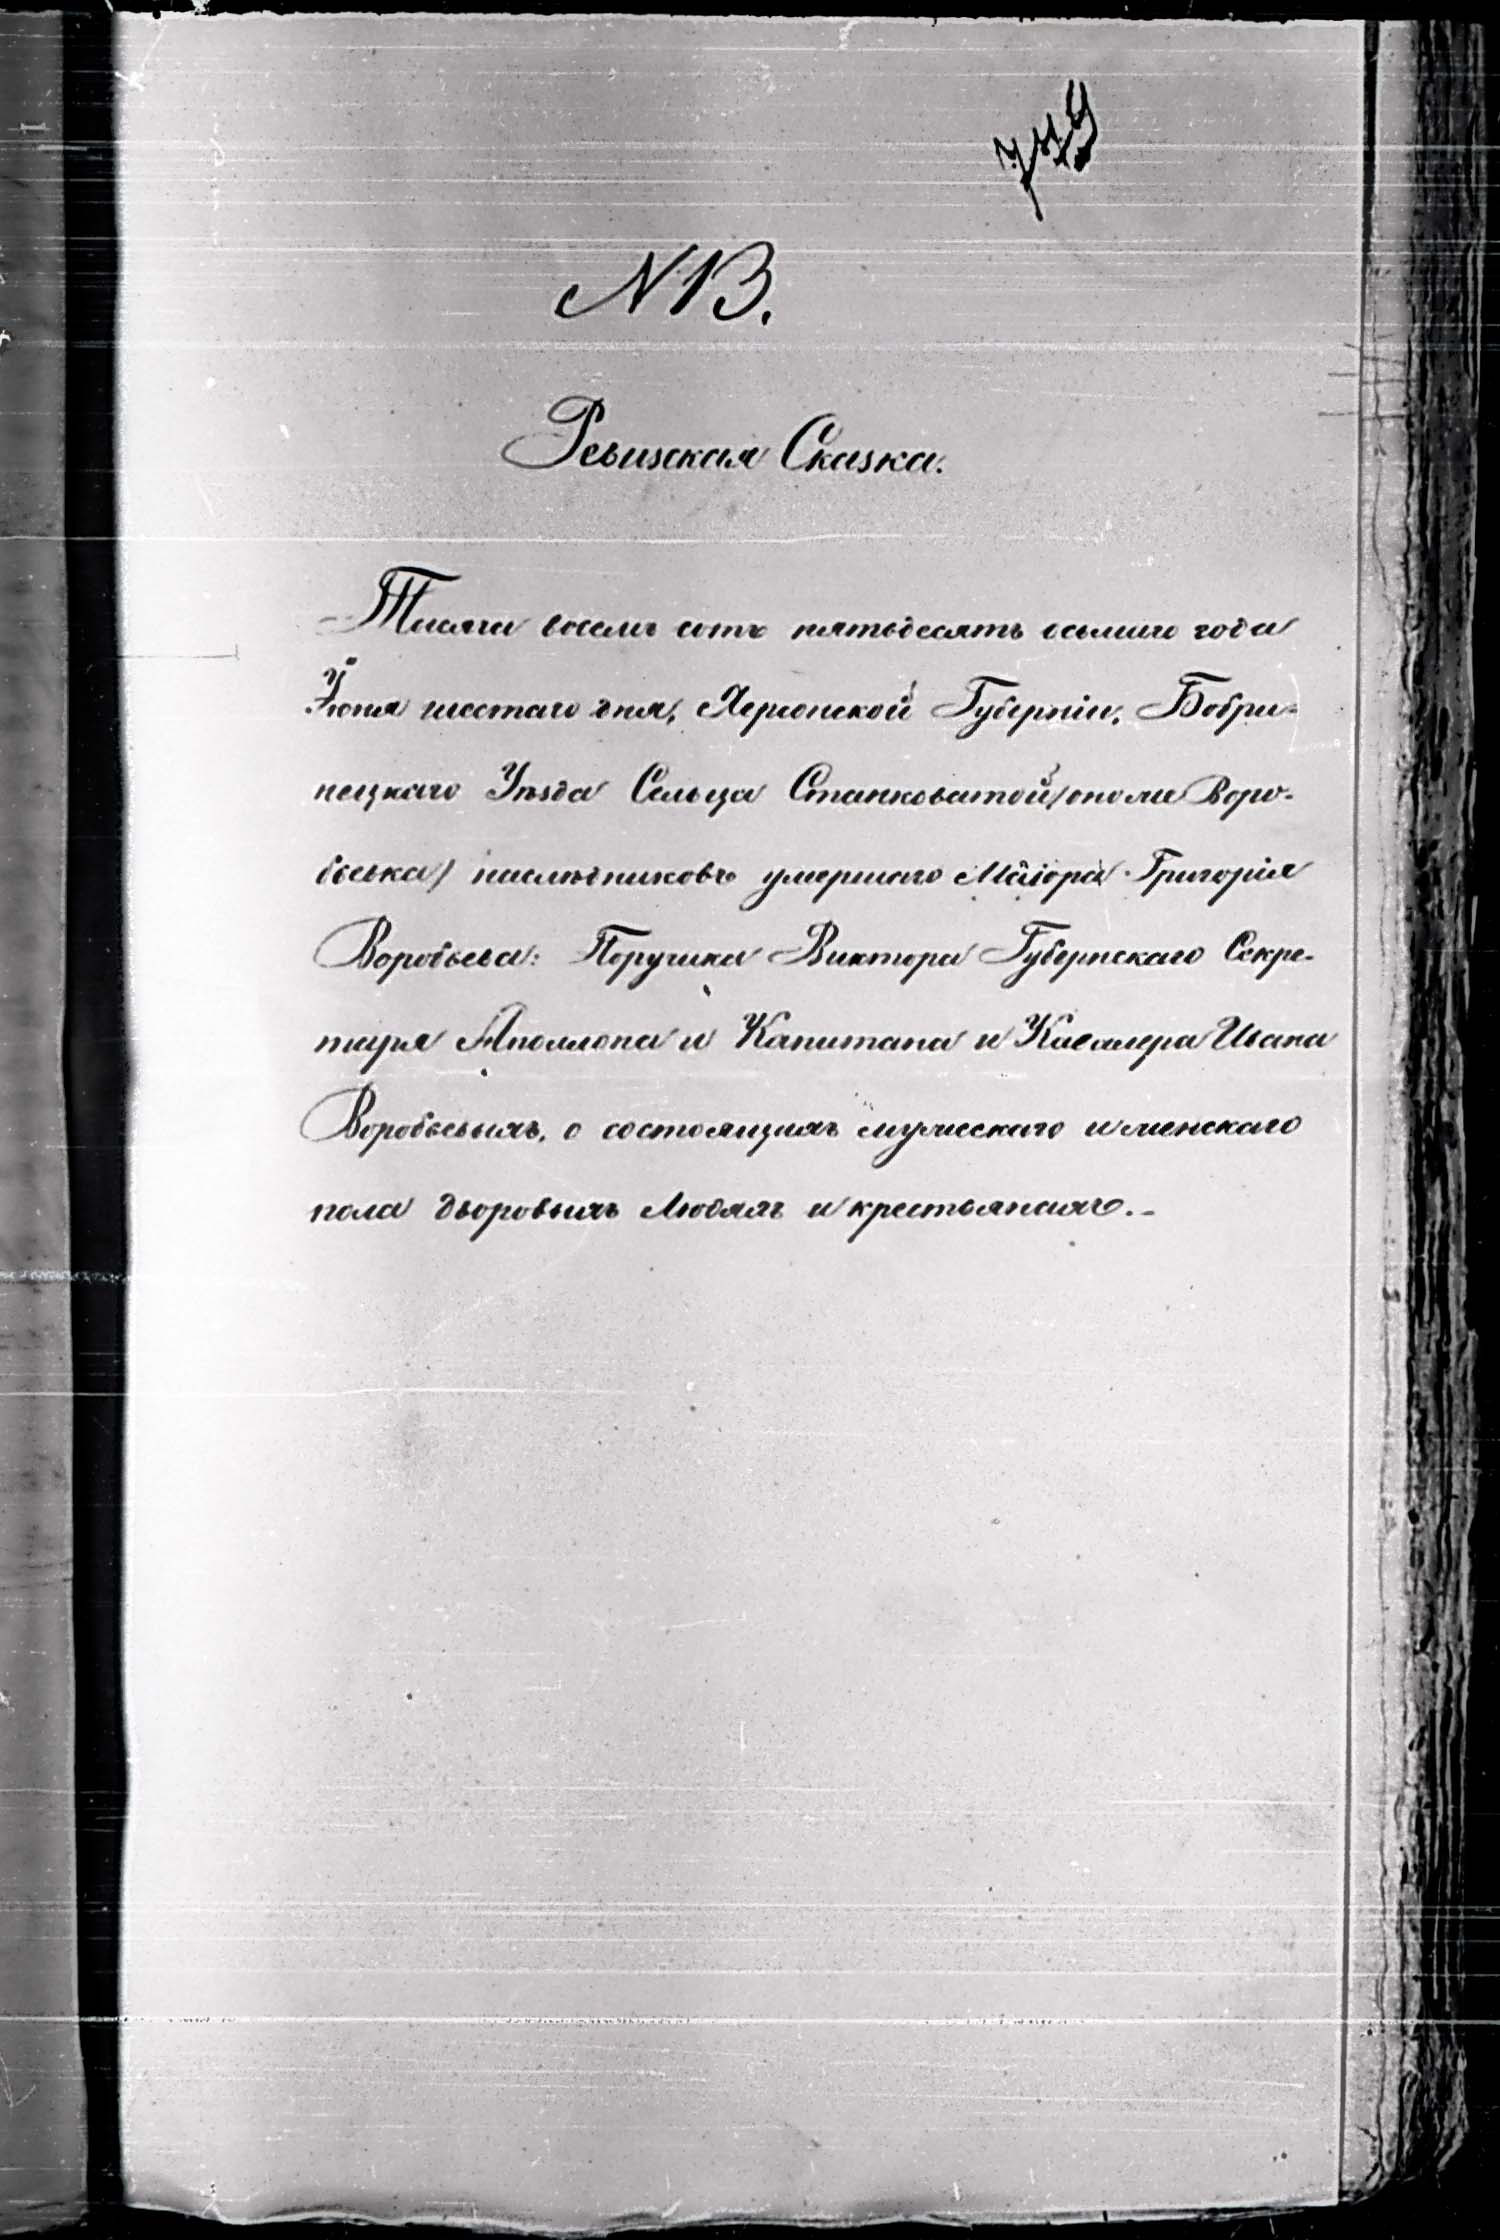 N 13.
Ревизская Сказка.
Тысяча восемь сотъ пятьдесятъ осьмаго года
Іюня шестаго дня, Херсонской Губерніи, Бобри-
нецкаго Уѣзда Сельца Станковатой /онože Воро-
бьевка/ наслѣдниковъ умершаго Маіора Григорія
Воробьева: Поручика Виктора Губернскаго Секре-
таря Аполлона и Капитана и Кавалера Ивана
Воробьевыхъ, о состоящихъ мужескаго и женскаго
пола дворовыхъ Людяхъ и крестьянахъ.